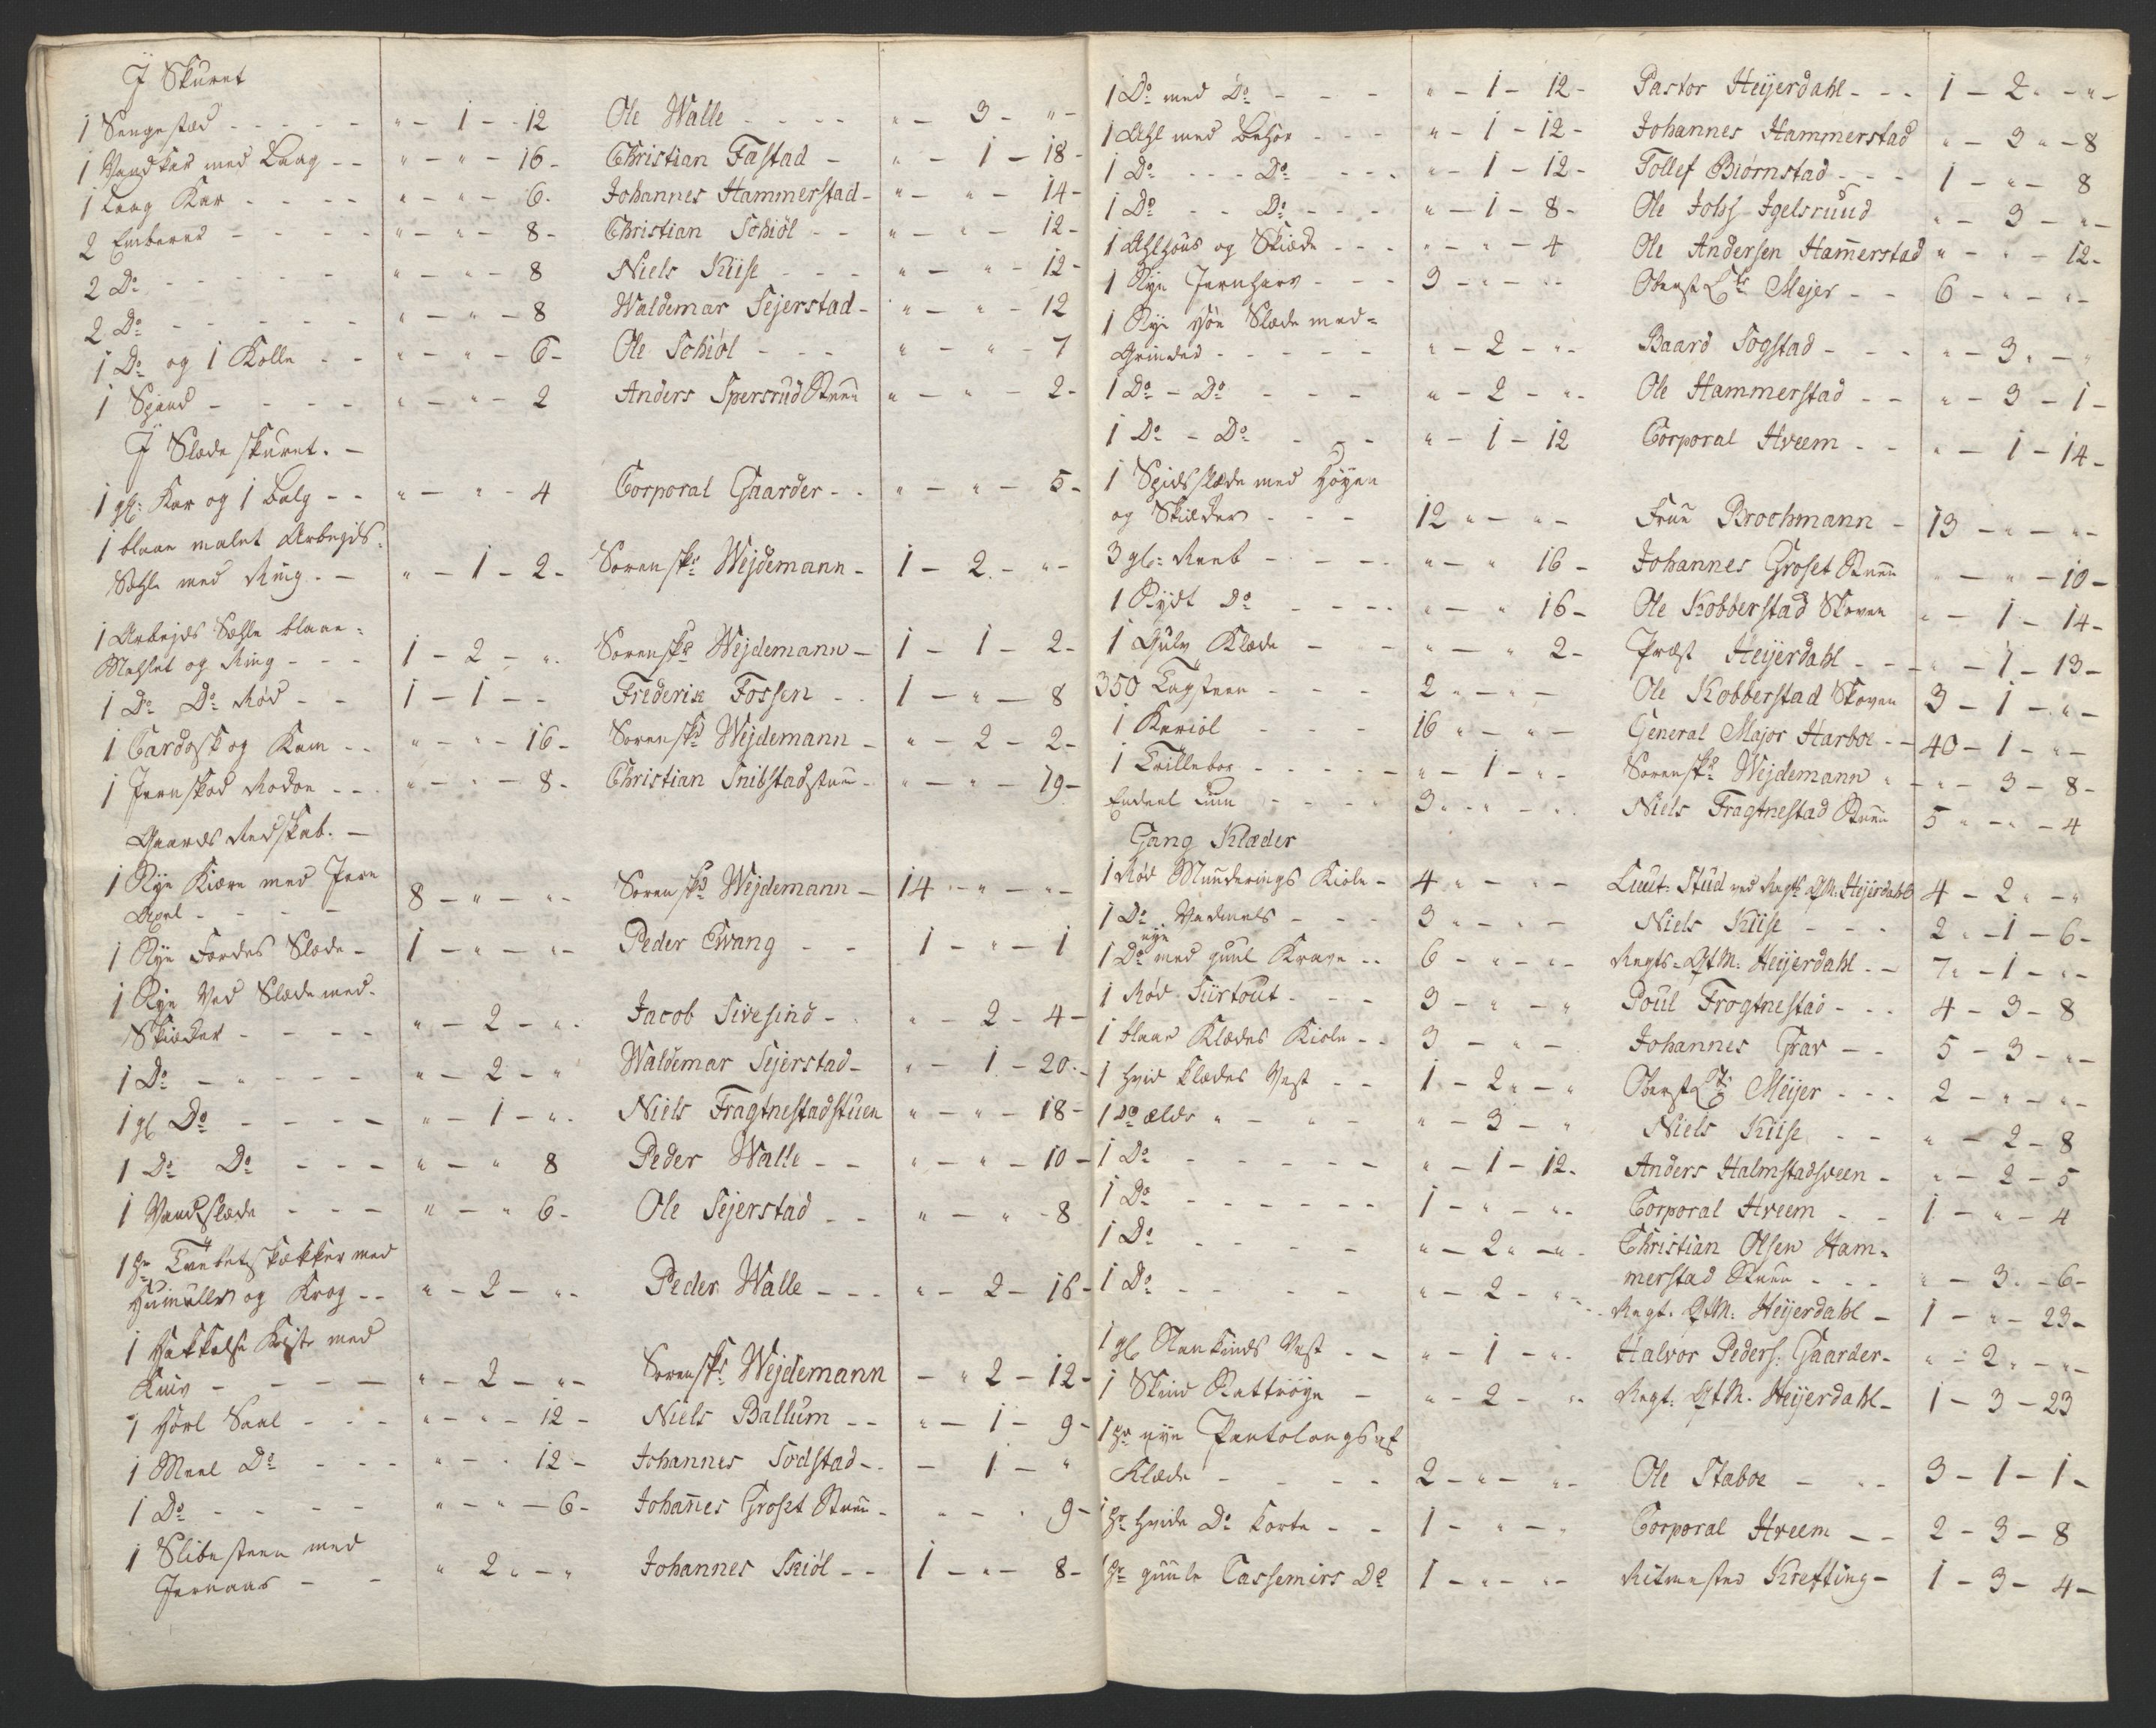 I Skuret
1 Sengested - - - - - " - 1 - 12 Ole Walle - - - - " - 3 - " -
1 Vandkar med Laag - - " - " - 16 - Christian Fastad - " - 1 - 18 -
1 Laag Kar - - - - " - " - 6 - Johannes Hammerstad - " - " - 14 -
2 Embered - - - - " - " - 8 - Christian Schiöl - - " - " - 12 -
2 Do - - - - - " - " - 8 Niels Kiise - - - " - " - 12 -
2 Do - - - - - " - " - 8 Waldemar Sejerstad - " - " - 12
1 Do og 1 Kolle - - " - " - 6 - Ole Schiøl - - - " - " - 7
1 Spand - - - - " - " - 2 Anders Spersrud Stuen " - " - 2 -
I Slæde skuret. -
1 gl: Kar og 1 Balg - - " - " - 4 Corporal Gaarder - - " - " - 5 -
1 blaae malet Arbejds-
Sæhle med Ring - - " - 1 - 2 - Sorenskr Wejdemann - 1 - 2 - " -
1 Arbejds Sæhle blaae-
Mahlet og Ring - - - 1 - 2 - " - Sorenskr Wejdemann - 1 - 1 - 2 -
1 Do Do Rød - - 1 - 1 - - Frederik Fossen - 1 - " - 8
1 Cardosk og Kam - - " - " - 16 - Sorenskr Wejdemann - " - 2 - 2 -
1 Jernskod - - - " - " - 8 - Christian Snibstadstuen - " - " - 19 -
Gaards Redskab. -
1 Nye Kiære med Jern
Axel - - - - 8 - " - " - Sorenskr Wejdemann - 14 - " - " -
1 Nye Slæde - 1 - " - " - Peder Twang - - 1 - " - 1
1 Nye Ved Slæde med-
Skieder - - - - " - 2 - " - Jacob Sivesind - " - 2 - 4 -
1 Do - " - - - " - 2 - " Waldemar Sejerstad - " - 1 - 20 -
1 gl Do - - - - " - 1 - " - Niels Fragtnestadstuen " - " - 18 -
1 Do Do - - - " - " 8 Peder Walle - - " - " - 10 -
1 Vandslæde - - - " - " 6 - Ole Sejerstad - - " - " - 8
1 pr med
og Krog - - " - 2 - " - Peder Walle - - - " - 2 - 16 -
1 Hakkelse Kiste med
Kniv - - - - " - 2 - " - Sorenskr Wejdemann - " 2 - 12 -
1 Saal - - - " - " - 12 - Niels Ballum - - " - 1 - 9 -
1 Meel Do - - - " - " 12 - Johannes Sodstad - - - 1 - "
1 Do - - - - " - " - 6 - Johannes Groset Stuen - " - " 9 -
1 Slibesteen med
Jernaas - - " 2 " - " Johannes Skiøl - - 1 - " - 8 -
1 Do med Do - - - " - 1 - 12 - Pastor Heijerdahl - - - 1 - 2 " - " -
1 med Behör - - - " - 1 - 12 - Johannes Hammerstad " - 2 " - 8
1 Do - - - Do - - - " - 1 - 12 - Tollef Biörnstad - - - 1 - " - 8
1 Do - - Do - - - " - 1 - 8 - Ole Johs Igelsruud " - 3 - " -
1 og Skiede - - - " - " - 4 Ole Andersen Hamerstad " - " - 12 -
1 Nye Jernharv - - - 3 - " - " - Oberst Lt: Mejer - - 6 - " - " -
1 Nye Slæde med-
Grinder - - - - - " - 2 - " - Baard Sogstad - - - " - 3 " - "
1 Do - Do - - - " - 2 - " - Ole Hammerstad - - " - 3 - 1 -
1 Do - Do - - - " - 1 - 12 Corporal Hveem - - " - 1 - 14 -
1 Spidsslæde med
og Skieder - - - 12 " - " - Frue Brochmann - 13 - " - " -
3 gl: Reeb - - - " - " 16 - Johannes Groset Stuen " - " - 10 -
1 Nydt Do - - - - " - " 16 - Ole Kobberstad Skoven " - 1 - 14 -
1 Gulv Klæde - - - " - " 2 - Præst Heijerdahl - - " - 1 - 13 -
350 Tagsteen - - - 2 " - " - Ole Kobberstad Skoven 3 - 1 - " -
1 Kariol - - - 16 " - " - General Major Harboe - - 40 - 1 - " -
1 Trillebor - - - - - " - 1 - " - Sorenskr Wejdemann " - " - 3 - 8 -
Endeel - - - - 3 " - " - " - Niels Fragtnestad Stuen 5 " - " - 4
Gang Klæder
1 Rød Munderings Kiole - 4 " - " - Lieut: Stud ved Regts Q.M. Heijerdahl 4 - 2 " - "
1 Do Vadmels - - - 3 " - " - Niels Kiise - - - 2 " - 1 - 6 -
nye
1 Do med guul Krave - - 6 - " - " - Regts- Q.M. Heijerdahl - - 7 " - 1 - " -
1 Rød Siirtout - - - 3 - " - " Poul Frogtnestad - - - 4 - 3 - 8
1 blaae Klædes Kiole - - 3 - " - Johannes Grav - - 5 - 3 - " -
1 hvid Klædes Vest - - 1 - 2 " - " Oberst Lt: Meijer - - - 2 - " - " -
1 Do ældr " - " - " - 3 - " Niels Kiise - - " - 2 - 8
1 Do - - - - - " - 1 - 12 - Anders Halmstadsveen - " - 2 - 5
1 Do - - - - - 1 - " - " - Corporal Hveem - - 1 - " - 4
1 Do - - - - " - 2 " - " - Christian Olsen Ham-
merstad Stuen - - - " - 3 " - 6 -
1 Do - - - - " - 2 - " - Regt. Q.M: Heijerdahl - 1 - " - 23 -
1 gl Nankinds Vest - - " - 1 - " - Halvor Peders: Gaarder - " - 2 " - " -
1 Skind Nattröye - " - 2 - " - Regt: Q.M. Heijerdahl - 1 - 3 - 23
1 pr nye Pantolongs af
Klæde - - - - 2 - " - " - Ole Staboe - " - 3 - 1 - 1 -
1 pr hvide Do korte - - 1 - " - " Corporal Hveem - - 2 - 3 - 8
1 pr guule Cassemirs Do 1 - " - " - Ritmester Krefting - 1 - 3 - 4 -